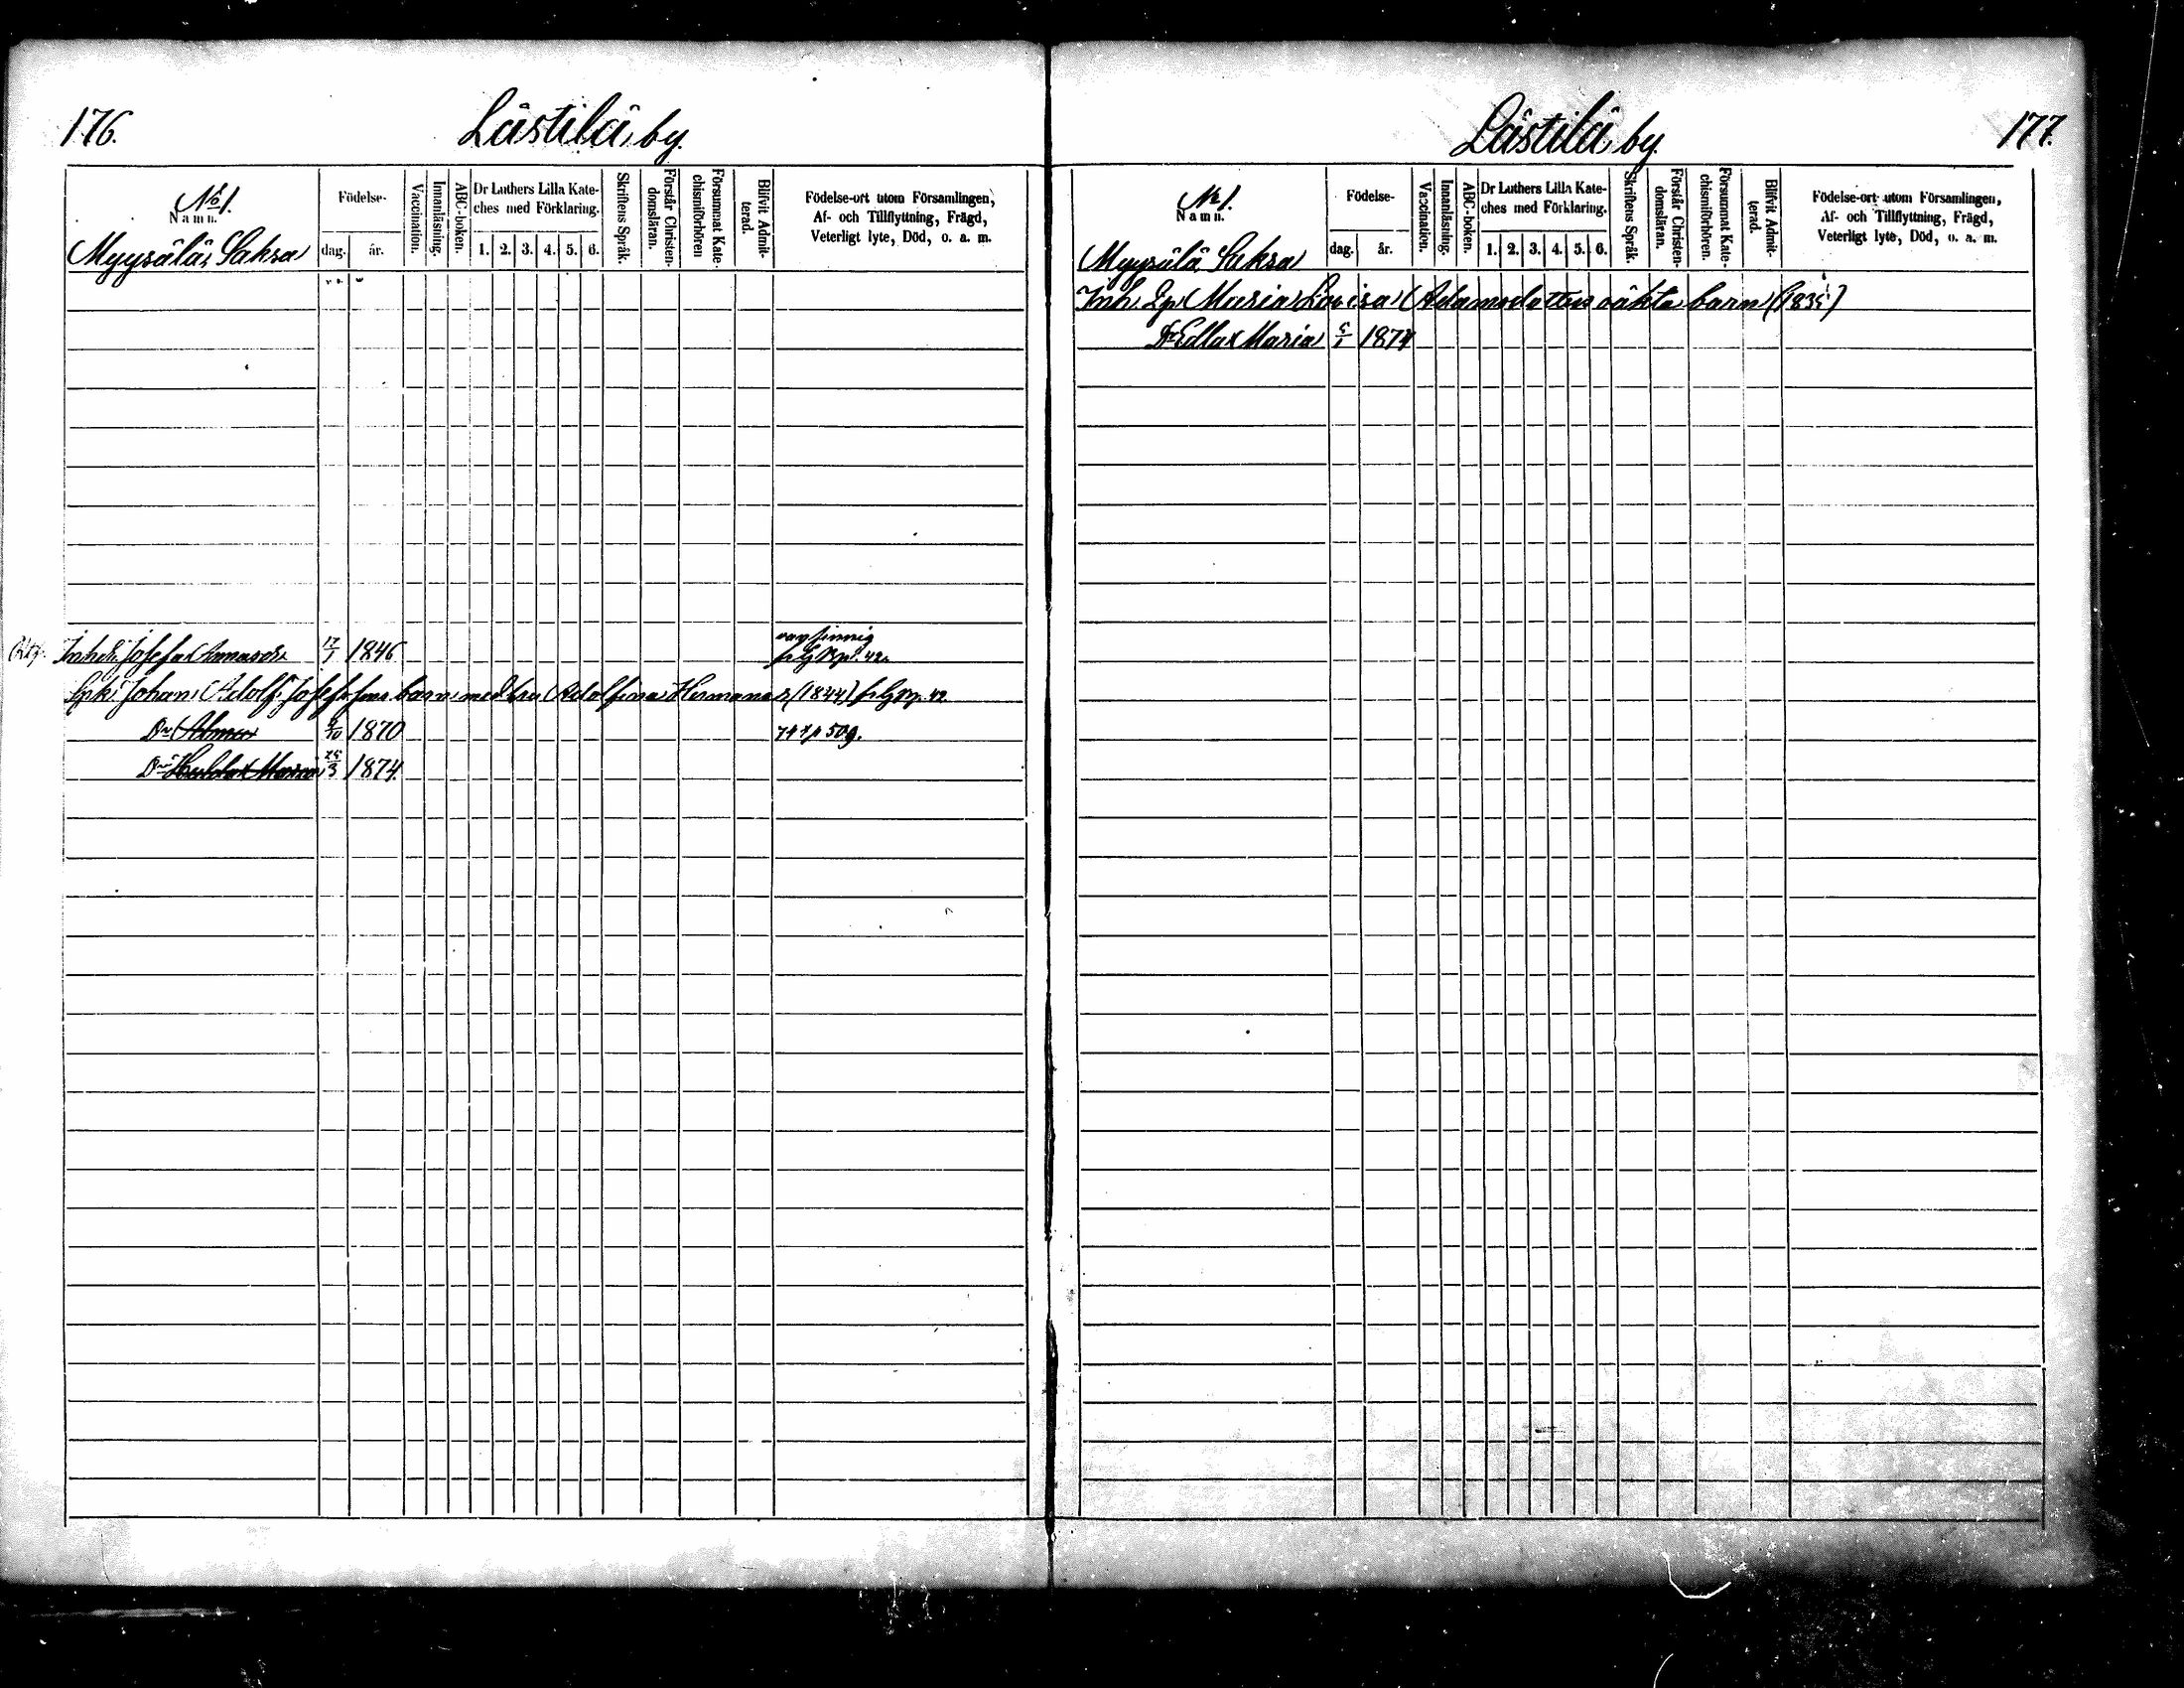 176.
Lästilä by.
No 1.
Namn.
Myysälä, Saksa
Födelse-
dag.
år.
Vaccination.
Innanläsning.
ABC-boken.
Dr Luthers Lilla Kate-
ches med Förklaring.
1. 2. 3. 4. 5. 6.
Skriftens Språk.
Förstår Christen-
domsläran.
Försummat Kate-
chismiförhören
Blifvit Admit-
terad.
Födelse-ort utom Församlingen,
Af- och Tillflyttning, Frägd,
Veterligt lyte, Död, o. a. m.
Josefa 17/1 1846
p. 42.
Johan Adolf barn med Adolfina (1844) p. 42
Dr Alma 9/10 1870 p 509.
Dr Hulda Maria 25/3 1874
Lästilä by.
177.
No 1.
Namn.
Myysälä Saksa
Födelse-
dag.
år.
Vaccination.
Innanläsning.
ABC-boken.
Dr Luthers Lilla Kate-
ches med Förklaring.
1. 2. 3. 4. 5. 6.
Skriftens Språk.
Förstår Christen-
domsläran.
Försummat Kate-
chismiförhören.
Blifvit Admit-
terad.
Födelse-ort utom Församlingen,
Af- och Tillflyttning, Frägd,
Veterligt lyte, Död, o. a. m.
Inh. Maria Lovisa Adamsdotters oäkta barn (1835)
Dr Edla Maria 1874